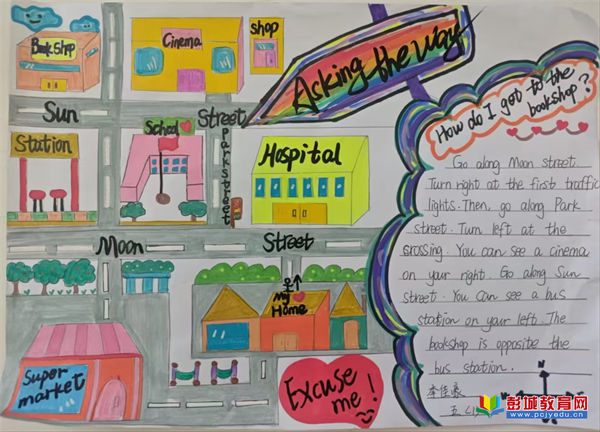 Book shop
Cinema
shop
Asking the way
Sun Street
Station
School
Park Street
Hospital
Moon Street
my
Home
Super
market
Excuse
me!
How do I get to the
bookshop?
Go along Moon street.
Turn right at the first traffic
lights. Then, go along Park
street. Turn left at the
crossing. You can see a cinema
on your right. Go along Sun
street. You can see a bus
station on your left. The
bookshop is opposite the
bus station.
N
彭城教育网
www.pcjyedu.cn